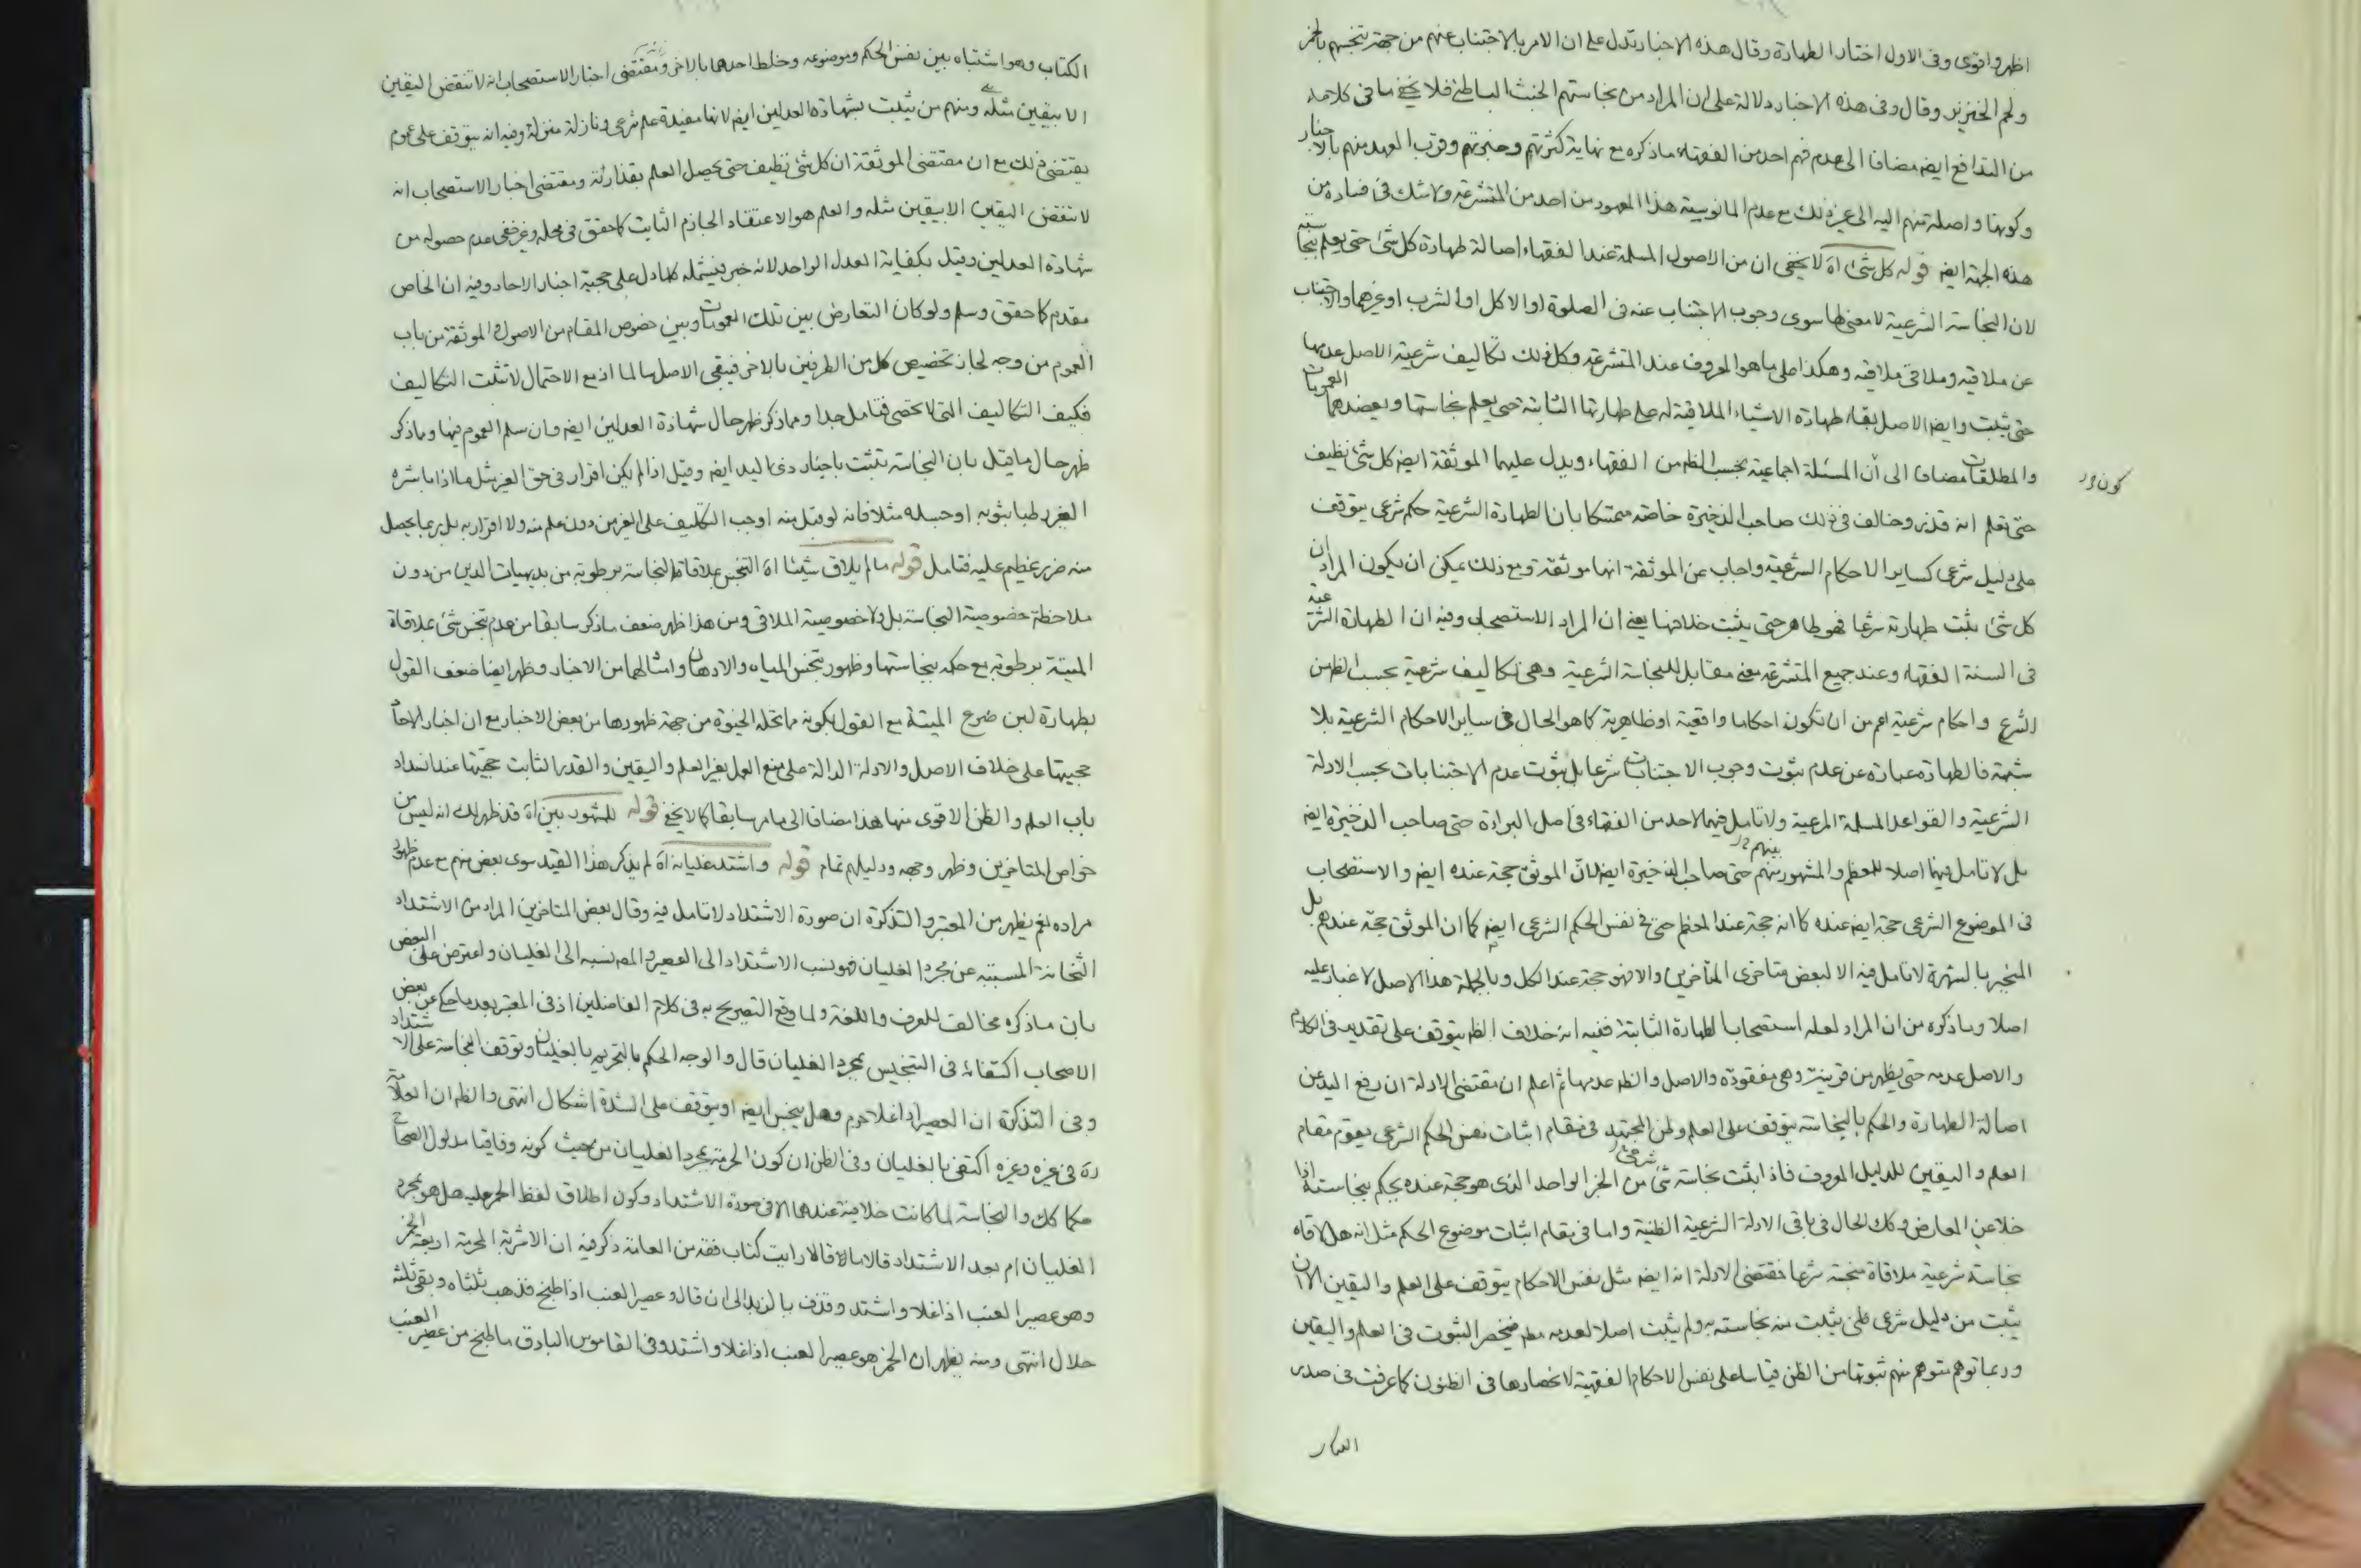 اظهر واقوى وفى الاول اختار الطهارة وقال هذه الاخبار تدل على ان الامر بالاجتناب عنهم من جهة تنجسهم بالخمر
ولحم الخنزير وقال وفى هذه الاخبار دلالة على ان المراد من نجاستهم الخبث الباطنى فلا يخفى ما فى كلامه
من التدافع ايضه مضافا الى عدم فهم احد من الفقهاء ماذكره مع نهاية كثرتهم وخبرتهم وقرب العهد منهم بالاخبار
وكونها واصلة منهم اليه الى غير ذلك مع عدم المانوسية هذا المعهود من احد من المتشرعة ولا شك فى فساده من
هذه الجهة ايضه قوله كل شئ اه لا يخفى ان من الاصول المسلمة عند الفقهاء اصالة طهارة كل شئ حتى يعلم نجاسته
لان النجاسة الشرعية لا معنى لها سوى وجوب الاجتناب عنه فى الصلوة او الاكل او الشرب او غيرهما والاجتناب
عن ملاقيه وملاقى ملاقيه وهكذا على ما هو المعروف عند المتشرعة وكل ذلك تكاليف شرعية الاصل عدمها
حتى يثبت وايضا الاصل بقاء طهارة الاشياء الملاقية له على طهارتها الثابتة حتى يعلم نجاستها ويعضدهما العمومات
والمطلقات مضافا الى ان المسئلة اجماعية بحسب الظه من الفقهاء ويدل عليهما الموثقة ايضه كل شئ نظيف
كون ور
حتى تعلم انه قذر وخالف فى ذلك صاحب الذخيرة خاصة متمسكا بان الطهارة الشرعية حكم شرعى يتوقف
على دليل شرعى كساير الاحكام الشرعية واجاب عن الموثقة انها موثقة ومع ذلك يمكن ان يكون المراد ان
كل شئ ثبت طهارته شرعا فهو طاهر حتى يثبت خلافها يعنى ان المراد الاستصحاب وفيه ان الطهارة الشرعية
فى السنة الفقهاء وعند جميع المتشرعة معنى مقابل للنجاسة الشرعية وهى تكاليف شرعية بحسب الظه من
الشرع واحكام شرعية اعم من ان تكون احكاما واقعية او ظاهرية كما هو الحال فى ساير الاحكام الشرعية بلا
شبهة فالطهارة عبارة عن عدم ثبوت وجوب الاجتنابات شرعا بل ثبوت عدم الاجتنابات بحسب الادلة
الشرعية والقواعد المسلمة المرعية ولا تامل فيها لاحد من الفقهاء فى اصل البراءة حتى صاحب الذخيرة ايضه
بل لا تامل فيها اصلا للمعظم والمشهور بينهم منهم حتى صاحب الذخيرة ايضه لان الموثق حجة عنده ايضه والاستصحاب
فى الموضوع الشرعى حجة ايضه عنده كما انه حجة عند المعظم حتى فى نفس الحكم الشرعى ايضه كما ان الموثق حجة عندهم بل
المنجبر بالشهرة لا تامل فيه الا لبعض متاخرى المتأخرين والا فهو حجة عند الكل وبالجملة هذا الاصل لا غبار عليه
اصلا وماذكره من ان المراد لعله استصحاب الطهارة الثابتة ففيه انه خلاف الظه يتوقف على تقدير فى الكلام
والاصل عدمه حتى يظهر من قرينة وهى مفقودة والاصل والظه عدمها ثم اعلم ان مقتضى الادلة ان رفع اليد عن
اصالة الطهارة والحكم بالنجاسة يتوقف على العلم وظن المجتهد فى مقام اثبات نفس الحكم الشرعى يقوم مقام
العلم واليقين للدليل المعروف فاذا ثبت نجاسة شئ شرعى من الخبر الواحد الذى هو حجة عنده يحكم بنجاسته اذا
خلا عن المعارض وكك الحال فى باقى الادلة الشرعية الظنية واما فى مقام اثبات موضوع الحكم مثل انه هل لاقاه
نجاسة شرعية ملاقاة منجسة شرعا فمقتضى الادلة انه ايضه مثل نفس الاحكام يتوقف على العلم واليقين الا ان
يثبت من دليل شرعى ظنى يثبت منه نجاسته به ولم يثبت اصلا لعدمه مطه فينحصر الثبوت فى العلم واليقين
وربما توهم متوهم منهم ثبوتها من الظن قياسا على نفس الاحكام الفقهية لانحصارها فى الظنون كما عرفت فى صدر
الكتاب وهو اشتباه بين نفس الحكم وموضوعه وخلط احدهما بالاخر ومقتضى اخبار الاستصحاب انه لا تنقض اليقين
الا بيقين مثله ومنهم من يثبت بشهادة العدلين ايضه لانها مفيدة علم شرعى ونازلة منزلة وفيه انه يتوقف على عموم
يقتضى ذلك مع ان مقتضى الموثقة ان كل شئ نظيف حتى يحصل العلم بقذارته ومقتضى اخبار الاستصحاب انه
لا تنقض اليقين الا بيقين مثله والعلم هو الاعتقاد الجازم الثابت كما حقق فى محله وغير خفى عدم حصوله من
شهادة العدلين وقيل بكفاية العدل الواحد لانه خبر فيشمله كلما دل على حجية اخبار الاحاد وفيه ان الخاص
مقدم كما حقق وسلم ولو كان التعارض بين تلك العمومات وبين خصوص المقام من الاصول والموثقة من باب
العموم من وجه لجاز تخصيص كل من الطرفين بالاخر فيبقى الاصل سالما اذ مع الاحتمال لا تثبت التكاليف
فكيف التكاليف التى لا تحصى فتامل جدا ومما ذكر ظهر حال شهادة العدلين ايضه وان سلم العموم فيها ومما ذكر
ظهر حال ما قيل بان النجاسة تثبت باخبار ذى اليد ايضه وقيل اذا لم يكن اقرار فى حق الغير مثل ما اذا باشره
الغير رطبا بثوبه او جسده مثلا فانه لو قبل منه اوجب التكليف على الغير من دون علم منه ولا اقرار به بل ربما يحصل
منه ضرر عظيم عليه فتامل قوله ما لم يلاق شيئا اه التنجس بملاقاة النجاسة برطوبة من بديهيات الدين من دون
ملاحظة خصوصية النجاسة بل ولا خصوصية الملاقى ومن هذا ظهر ضعف ماذكر سابقا من عدم تنجس شئ بملاقاة
الميتة برطوبة مع حكمه بنجاستها وظهور تنجس المياه والادهان وامثالهما من الاخبار وظهر ايضا ضعف القول
بطهارة لبن ضرع الميتة مع القول بكونه مما تحله الحيوة من جهة ظهورها من بعض الاخبار مع ان اخبار الاحاد
حجيتها على خلاف الاصل والادلة الدالة على منع العمل بغير العلم واليقين والقدر الثابت حجيتها عند انسداد
باب العلم والظن الاقوى منها هذا مضافا الى مامر سابقا كما لا يخفى قوله للمشهور بين اه قد ظهر لك انه ليس من
خواص المتاخرين وظهر وجهه ودليلهم تمام قوله واشتد غليانه اه لم يذكر هذا القيد سوى بعض منهم مع عدم ظهور
مراده نعم يظهر من المعتبر والتذكرة ان صورة الاشتداد لا تامل فيه وقال بعض المتاخرين المراد من الاشتداد
الثخانة المسببة عن مجرد الغليان فهو نسب الاشتداد الى العصير والمصه نسبه الى الغليان واعترض على البعض
بان ماذكره مخالف للعرف واللغة ولما وقع التصريح به فى كلام الفاضلين اذ فى المعتبر بعد ما حكى عن بعض
الاصحاب اكتفائه فى التنجيس بمجرد الغليان قال والوجه الحكم بالتحريم بالغليان وتوقف النجاسة على الاشتداد
وفى التذكرة ان العصير اذا غلا حرم وهل ينجس ايضه او يتوقف على الشدة اشكال انتهى والظه ان العلامة
ره فى غيره وغيره اكتفى بالغليان وفى الظن ان كون الحرمة بمجرد الغليان من حيث كونه وفاقيا مدلول الصحاح
حكما كك والنجاسة لما كانت خلافية عندهما الا فى صورة الاشتداد وكون اطلاق لفظ الخمر عليه هل هو بمجرد
الغليان ام بعد الاشتداد قالا ما قالا رايت كتاب فقه من العامة ذكر فيه ان الاشربة المحرمة اربعة الخمر
وهو عصير العنب اذا غلا واشتد وقذف بالزبد الى ان قال وعصير العنب اذا طبخ فذهب ثلثاه وبقى ثلثه
حلال انتهى ومنه يظهر ان الخمر هو عصير العنب اذا غلا واشتد وفى القاموس الباذق ما طبخ من عصير العنب